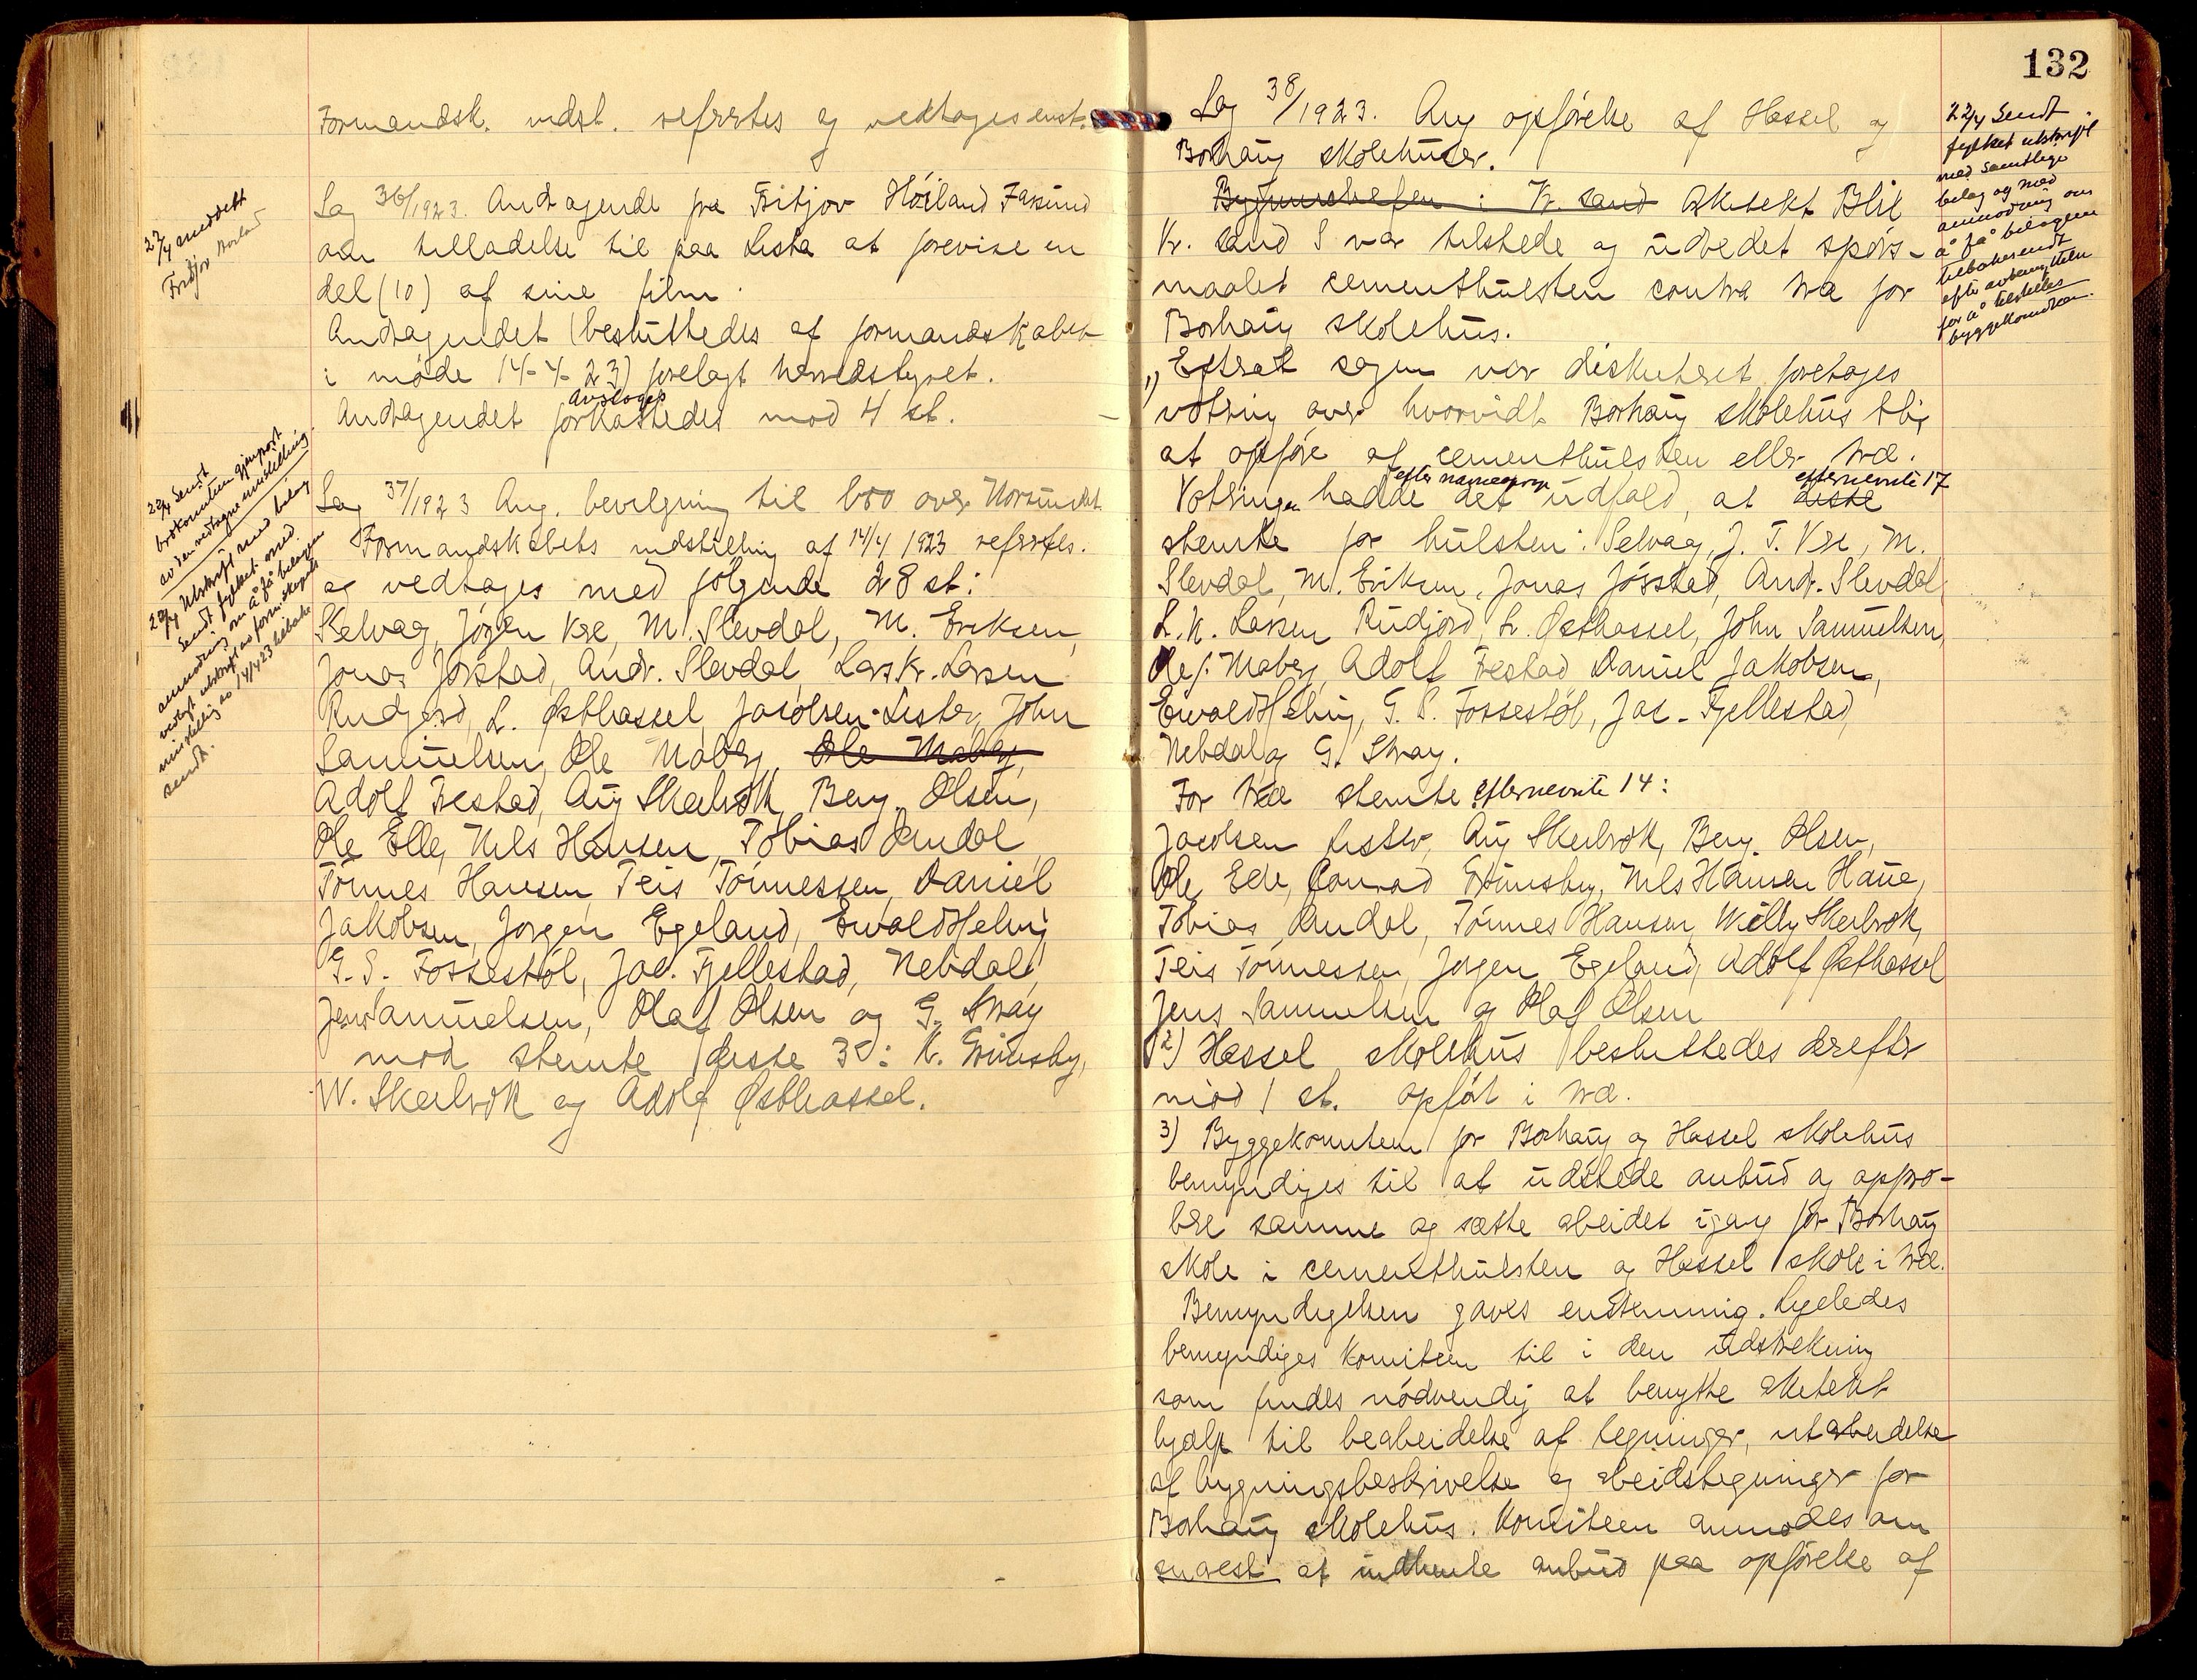 Formandsk. indst. refertes og vedtages enst.
27/4 meddelt
Fridtjov
Sag 36/1923. Andragende fra Fritjov Höiland Farsund
om tilladelse til paa Lista at forevise en
del (10) af sine film.
Andragendet (besluttedes af formandskabet
i möde 14-4-23) forelagt herredstyret.
avsloges
Andragendet forkastedes mod 4 st.
22/4 Sendt
brokomiteen gjenpart
av den vedtagne indstilling
22/4 Utskrift med bilag
sendt fylket med
anmodning om å få bilagene
vedlagt utskrift av formandskapets
indstilling av 14/4 23 tilbake
sendt.
Sag 37/1923 Ang. bevilgning til bro over
Formandskabets indstilling af 14/4 1923 refertes.
og vedtages med fölgende 28 st:
Selvaag, Jörgen Vere, M. Slevdal, M. Eriksen,
Jonas Jörstad, Andr. Slevdal, Lars Kr. Larsen
Rudjord, L. Østhassel, Jacobsen-Lister, John
Samuelsen, Ole Maberg, Ole Maberg,
Adolf Frestad, Aug Skeibrok, Berg. Olsen,
Ole Elle, Nils Hansen, Tobias Aendal,
Tönnes Hansen, Teis Tönnessen, Daniel
Jakobsen, Jörgen Egeland, Ewald Helvig
G. S. Fossestöl, Jac. Fjellestad, Nebdal,
Jens Samuelsen, Olaf Olsen og G. Stray
mod stemte disse 3: K. Grimsby,
W. Skeibrok og Adolf Østhassel.
132
Sag 38/1923. Ang opförelse af Hassel og
Borhaug skolehuser.
Kr. sand Arkitekt Blix
Kr. sand S var tilstede og udredet spörs-
maalet cementhulsten contra træ for
Borhaug skolehus.
22/4 Sendt
fylket utskrift
med samtlige
bilag og med
anmodning om
å få bilagene
tilbakesendt
efter avbenyttelse
for å tilstilles
byggekomiteen.
1) Efterat sagen var diskuteret foretages
votering over hvorvidt Borhaug skolehus blir
at opföre af cementhulsten eller træ.
efter navneoprop
efternevnte 17
Voteringen hadde det udfald, at diske
stemte for hulsten: Selvaag, J. T. Vere, M.
Slevdal, M. Eriksen, Jonas Jörstad, Andr. Slevdal
L. K. Larsen Rudjord, L. Østhassel, John Samuelsen,
Ole J. Maberg, Adolf Frestad Daniel Jakobsen,
Ewald Helvig, G. S. Fossestöl, Jac. Fjellestad,
Nebdal og G. Stray.
For træ stemte efternevnte 14:
Jacobsen Lister, Aug Skeibrok, Berg. Olsen,
Ole Elle, Conrad Grimsby, Nils Hansen Haue,
Tobias Aendal, Tönnes Hansen, Willy Skeibrok,
Teis Tönnessen, Jörgen Egeland, Adolf Østhassel
Jens Samuelsen og Olaf Olsen
2) Hassel skolehus besluttedes derefter
mod 1 st. opfört i træ.
3) Byggekomiteen for Borhaug og Hassel skolehus
bemyndiges til at udstede anbud og appro-
bere samme og sætte arbeidet igang for Borhaug
skole i cementhulsten og Hassel skole i træ.
Bemyndigelsen gaves enstemmig. Ligeledes
bemyndiges komiteen til i den udstrekning
som findes nödvendig at benytte arkitekt
hjælp til bearbeidelse af tegninger, utarbeidelse
af bygningsbeskrivelse og arbeidstegninger for
Borhaug skolehus. Komiteen anmodes om
snarest at indhente anbud paa opförelse af